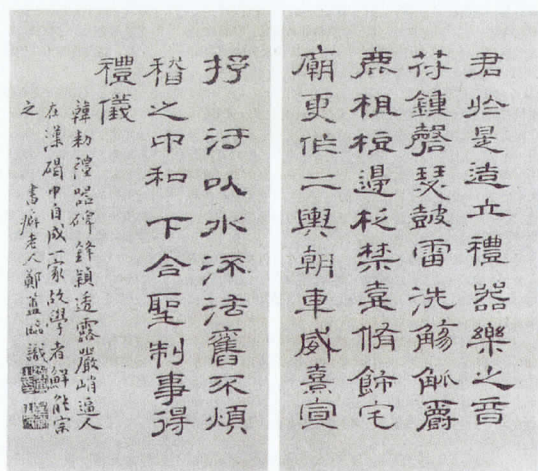 君於是造立禮器樂之音
苻鍾磬瑟鼓雷洗觴觚爵
鹿柤梪邊柉禁壺脩飾宅
廟更作二輿朝車威熹宣
抒汙以水流法舊不煩
稽之中和下合聖制事得
禮儀
韓勑禮器碑鋒穎透露嚴峭逼人
在漢碣中自成一家故學者鮮能宗
之 書癖老人鄭簠臨識